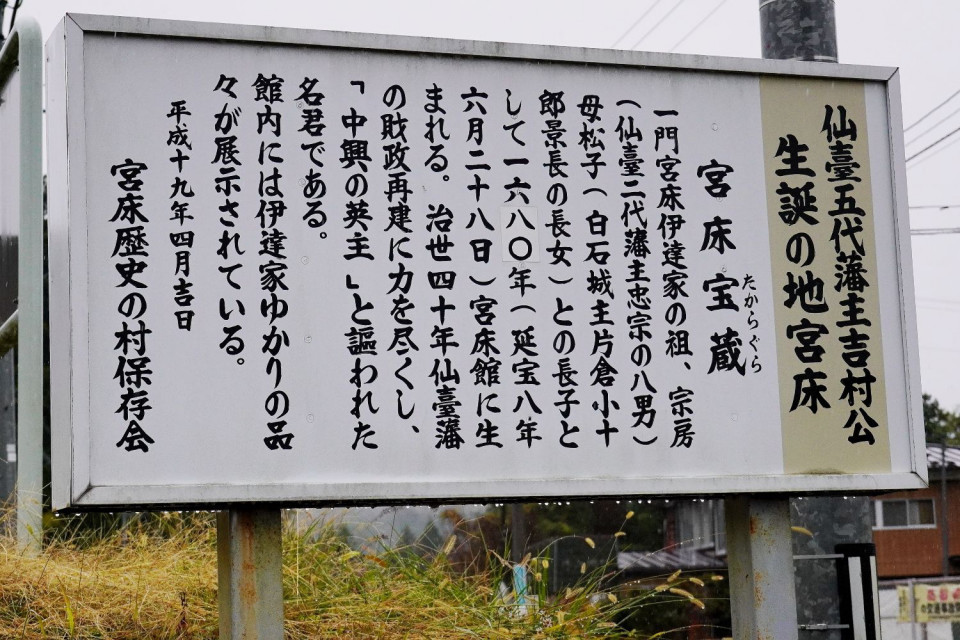 仙臺五代藩主吉村公
生誕の地宮床
宮床宝蔵
たからぐら
一門宮床伊達家の祖、宗房
(仙臺二代藩主忠宗の八男)
母松子(白石城主片倉小十
郎景長の長女)との長子と
して一六八〇年(延宝八年
六月二十八日)宮床館に生
まれる。治世四十年仙臺藩
の財政再建に力を尽くし、
「中興の英主」と謳われた
名君である。
館内には伊達家ゆかりの品
々が展示されている。
平成十九年四月吉日
宮床歴史の村保存会